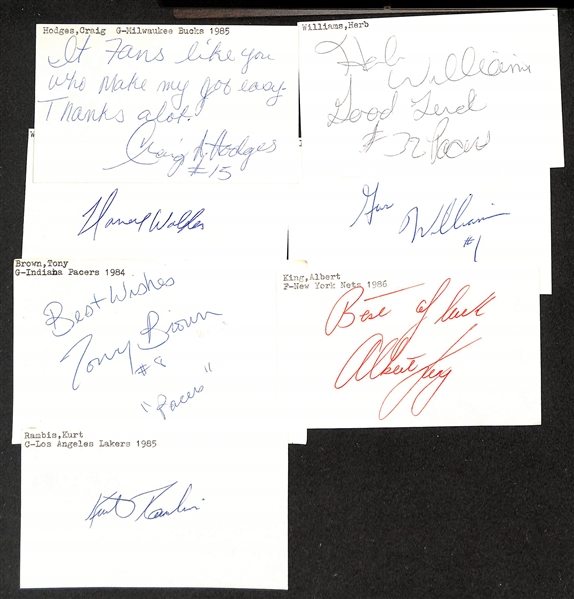 Hodges,Craig G-Milwaukee Bucks 1985
It Fans like you
who make my job easy.
Thanks alot.
Craig A. Hodges
#15
Williams,Herb
Herb Williams
Good Luck
#32 Pacers
Gus Williams
#1
Brown,Tony
G-Indiana Pacers 1984
Best Wishes
Tony Brown
#8
"Pacers"
King,Albert
F-New York Nets 1986
Best of luck
Albert King
Rambis,Kurt
C-Los Angeles Lakers 1985
Kurt Rambis